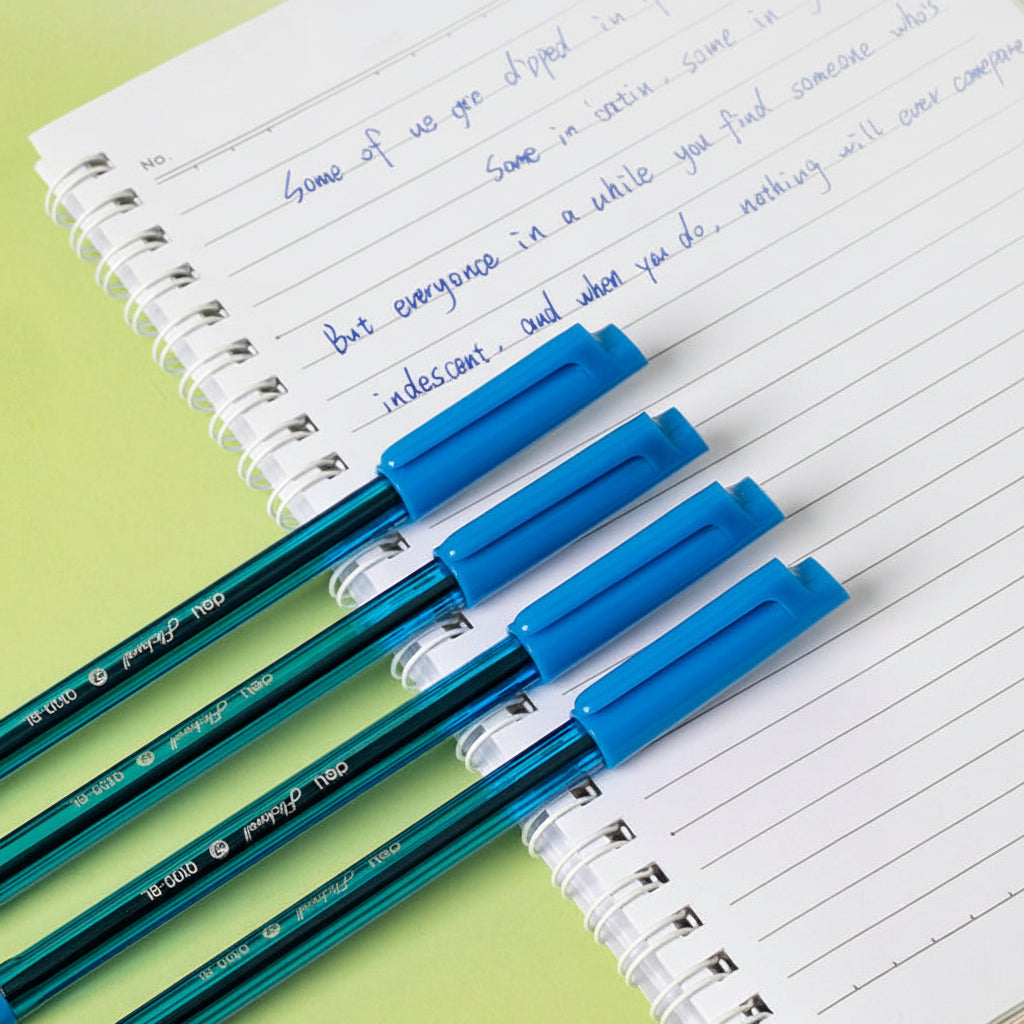 No.
Some of we are dipped in
Some in satin, some in
But everyonce in a while you find someone who's
indescent, and when you do, nothing will ever compare
deli Flickwell Q100-BL
deli Flickwell Q100-BL
deli Flickwell Q100-BL
deli Flickwell Q100-BL